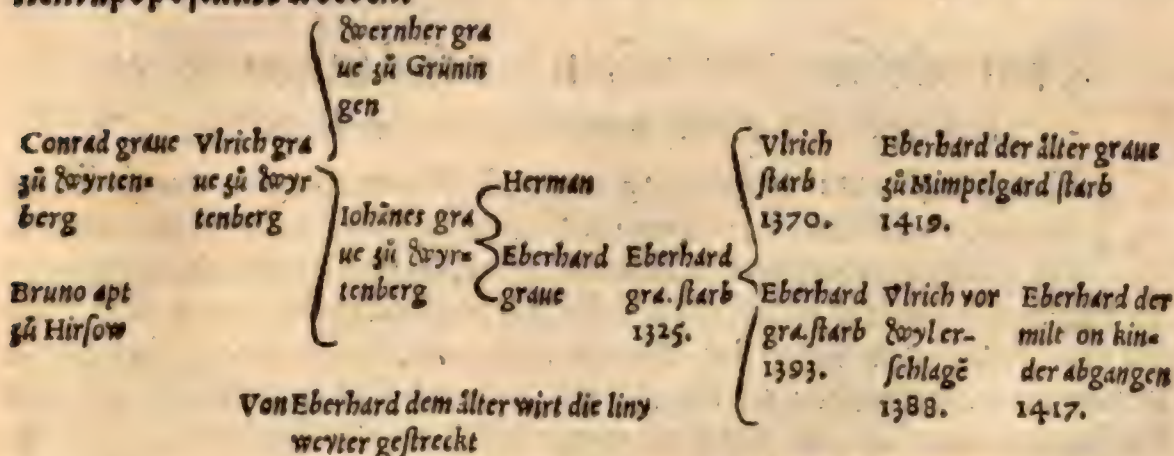 Wernher gra
ue zů Grünin
gen
Conrad graue
zů Wyrten=
berg
Vlrich gra
ue zů Wyr
tenberg
Bruno apt
zů Hirſow
Iohānes gra
ue zů Wyr=
tenberg
Herman
Eberhard
graue
Eberhard
gra. ſtarb
1325.
Vlrich
ſtarb
1370.
Eberhard der älter graue
zů Mimpelgard ſtarb
1419.
Eberhard
gra. ſtarb
1393.
Vlrich vor
Wyl er-
ſchlagē
1388.
Eberhard der
milt on kin=
der abgangen
1417.
Von Eberhard dem älter wirt die liny
weyter geſtreckt